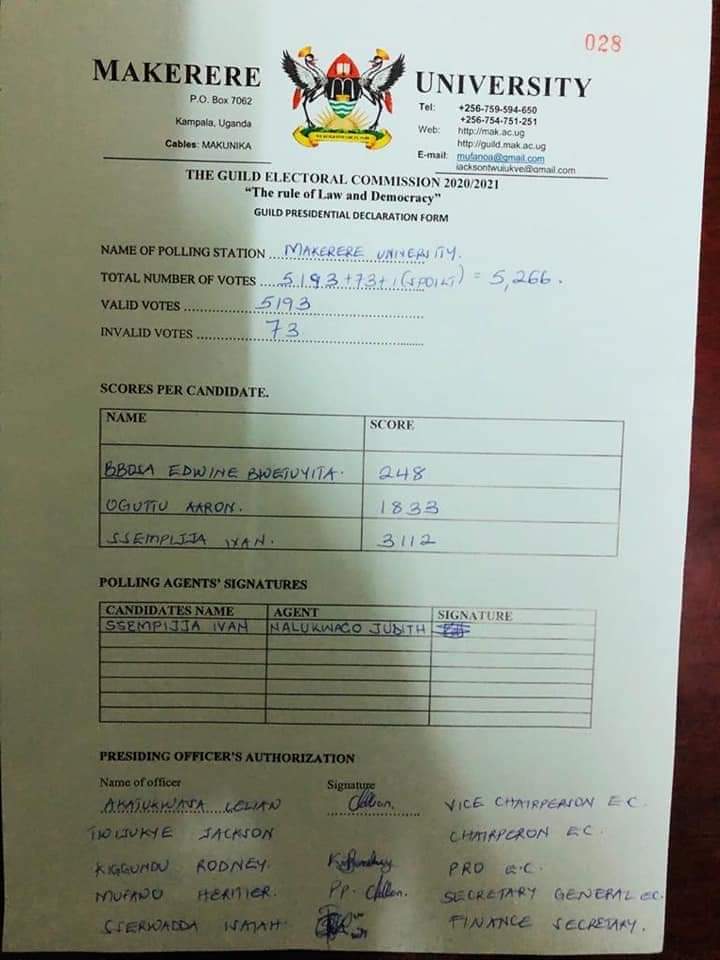 028
MAKERERE UNIVERSITY
P.O. Box 7062
Kampala, Uganda
Cables: MAKUNIKA
Tel: +256-759-594-650
+256-754-751-251
Web: http://mak.ac.ug
http://guild.mak.ac.ug
E-mail: mufanoa@gmail.com
THE GUILD ELECTORAL COMMISSION 2020/2021
"The rule of Law and Democracy"
GUILD PRESIDENTIAL DECLARATION FORM
NAME OF POLLING STATION ... MAKERERE UNIVERSITY.
TOTAL NUMBER OF VOTES .... 5193+73+1(SPOILT) = 5,266.
VALID VOTES .... 5193
INVALID VOTES .... 73
SCORES PER CANDIDATE.
NAME SCORE
BBOSA EDWINE BWETUYITA. 248
OGUTTU AARON. 1833
SSEMPIJJA IVAN. 3112
POLLING AGENTS' SIGNATURES
CANDIDATES NAME AGENT SIGNATURE
SSEMPIJJA IVAN NALUKWAGO JUDITH
PRESIDING OFFICER'S AUTHORIZATION
Name of officer Signature
LILIAN VICE CHAIRPERSON E.C.
JACKSON CHAIRPERON E.C.
KIGGUNDU RODNEY. PRO E.C.
MUFANO Pp. SECRETARY GENERAL EC.
SSERWADDA ISAIAH. FINANCE SECRETARY.